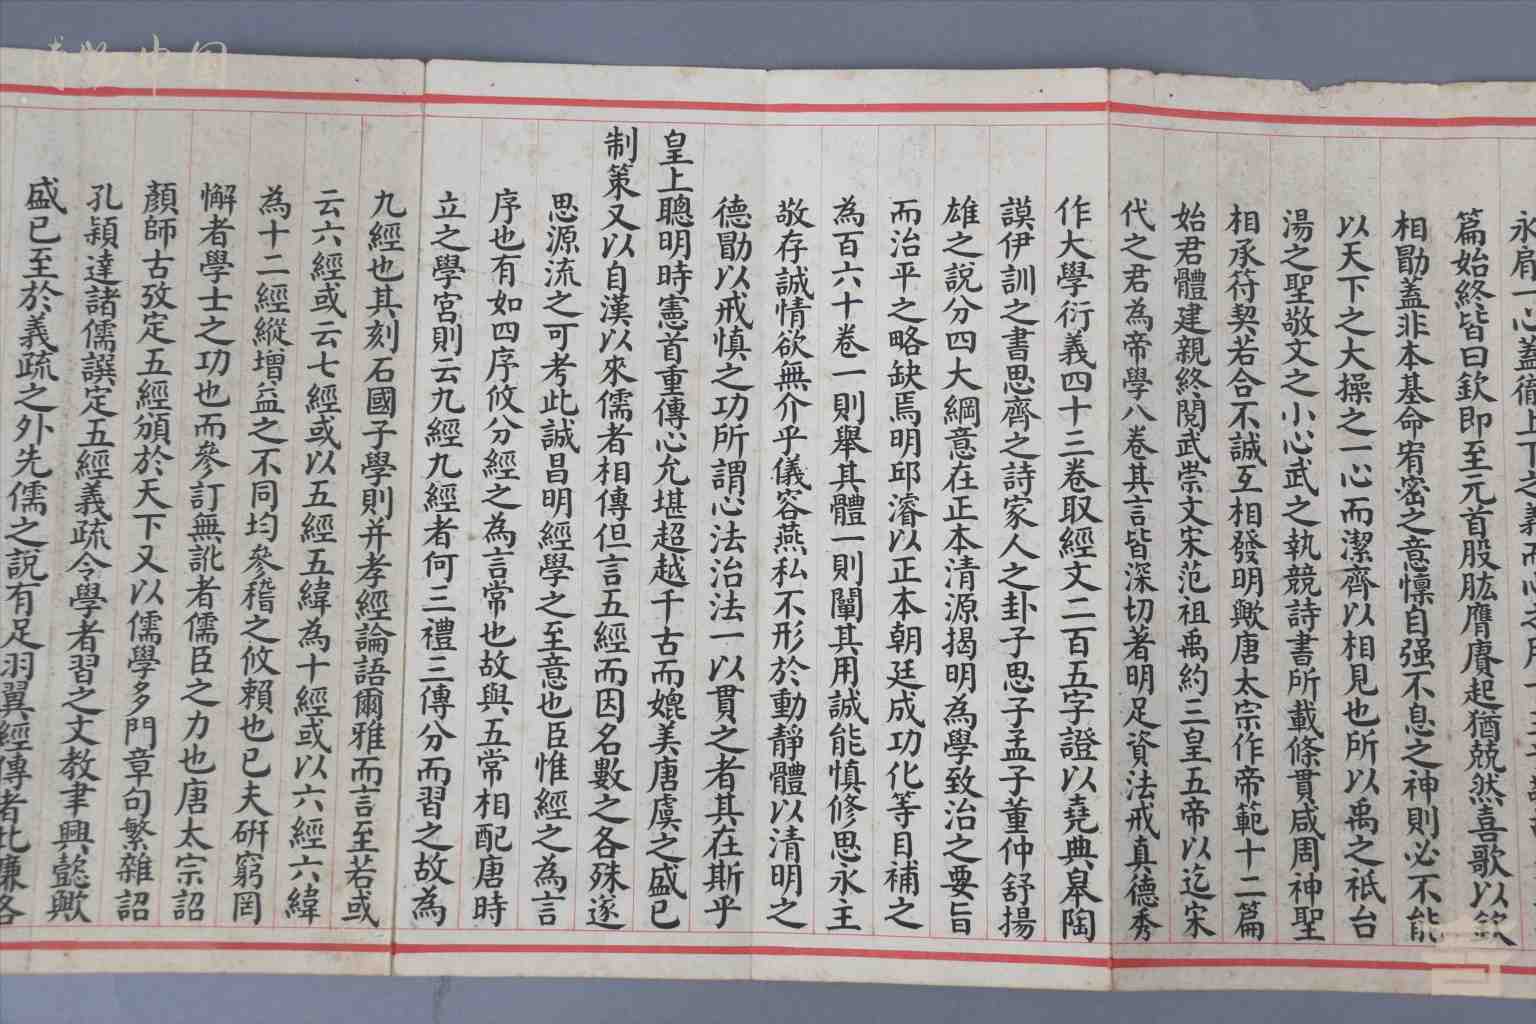 永肩一心蓋徹上下之義而心之用
篇始終皆曰欽即至元首股肱賡起猶兢然喜歌以欽
相勖蓋非本基命宥密之意懍自强不息之神則必不能
以天下之大操之一心而潔齊以相見也所以禹之祗台
湯之聖敬文之小心武之執競詩書所載條貫咸周神聖
相承符契若合不誠互相發明歟唐太宗作帝範十二篇
始君體建親終閱武崇文宋范祖禹約三皇五帝以迄宋
代之君為帝學八卷其言皆深切著明足資法戒真德秀
作大學衍義四十三卷取經文二百五字證以堯典皋陶
謨伊訓之書思齊之詩家人之卦子思子孟子董仲舒揚
雄之說分四大綱意在正本清源揭明為學致治之要旨
而治平之略缺焉明邱濬以正本朝廷成功化等目補之
為百六十卷一則舉其體一則闡其用誠能慎修思永主
敬存誠情欲無介乎儀容燕私不形於動靜體以清明之
德勖以戒慎之功所謂心法治法一以貫之者其在斯乎
皇上聰明時憲首重傳心允堪超越千古而媲美唐虞之盛已
制策又以自漢以來儒者相傳但言五經而因名數之各殊遂
思源流之可考此誠昌明經學之至意也臣惟經之為言
序也有如四序攸分經之為言常也故與五常相配唐時
立之學宮則云九經九經者何三禮三傳分而習之故為
九經也其刻石國子學則并孝經論語爾雅而言至若或
云六經或云七經或以五經五緯為十經或以六經六緯
為十二經縱增益之不同均參稽之攸賴也已夫研窮罔
懈者學士之功也而參訂無訛者儒臣之力也唐太宗詔
顏師古攷定五經頒於天下又以儒學多門章句繁雜詔
孔穎達諸儒譔定五經義疏令學者習之文教聿興懿歟
盛已至於義疏之外先儒之說有足羽翼經傳者比廉各
博览中国